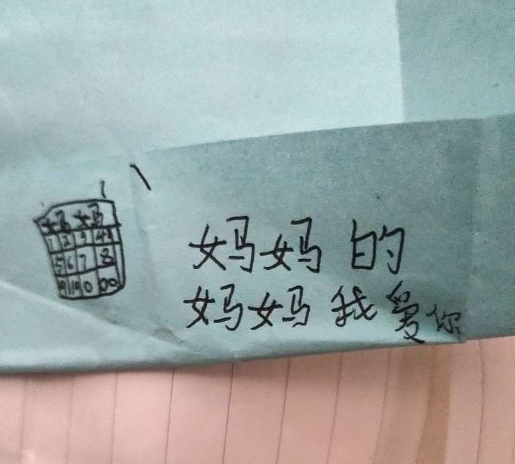 妈妈
1 2 3 4
5 6 7 8
9 10 0 00
妈妈的
妈妈我爱你